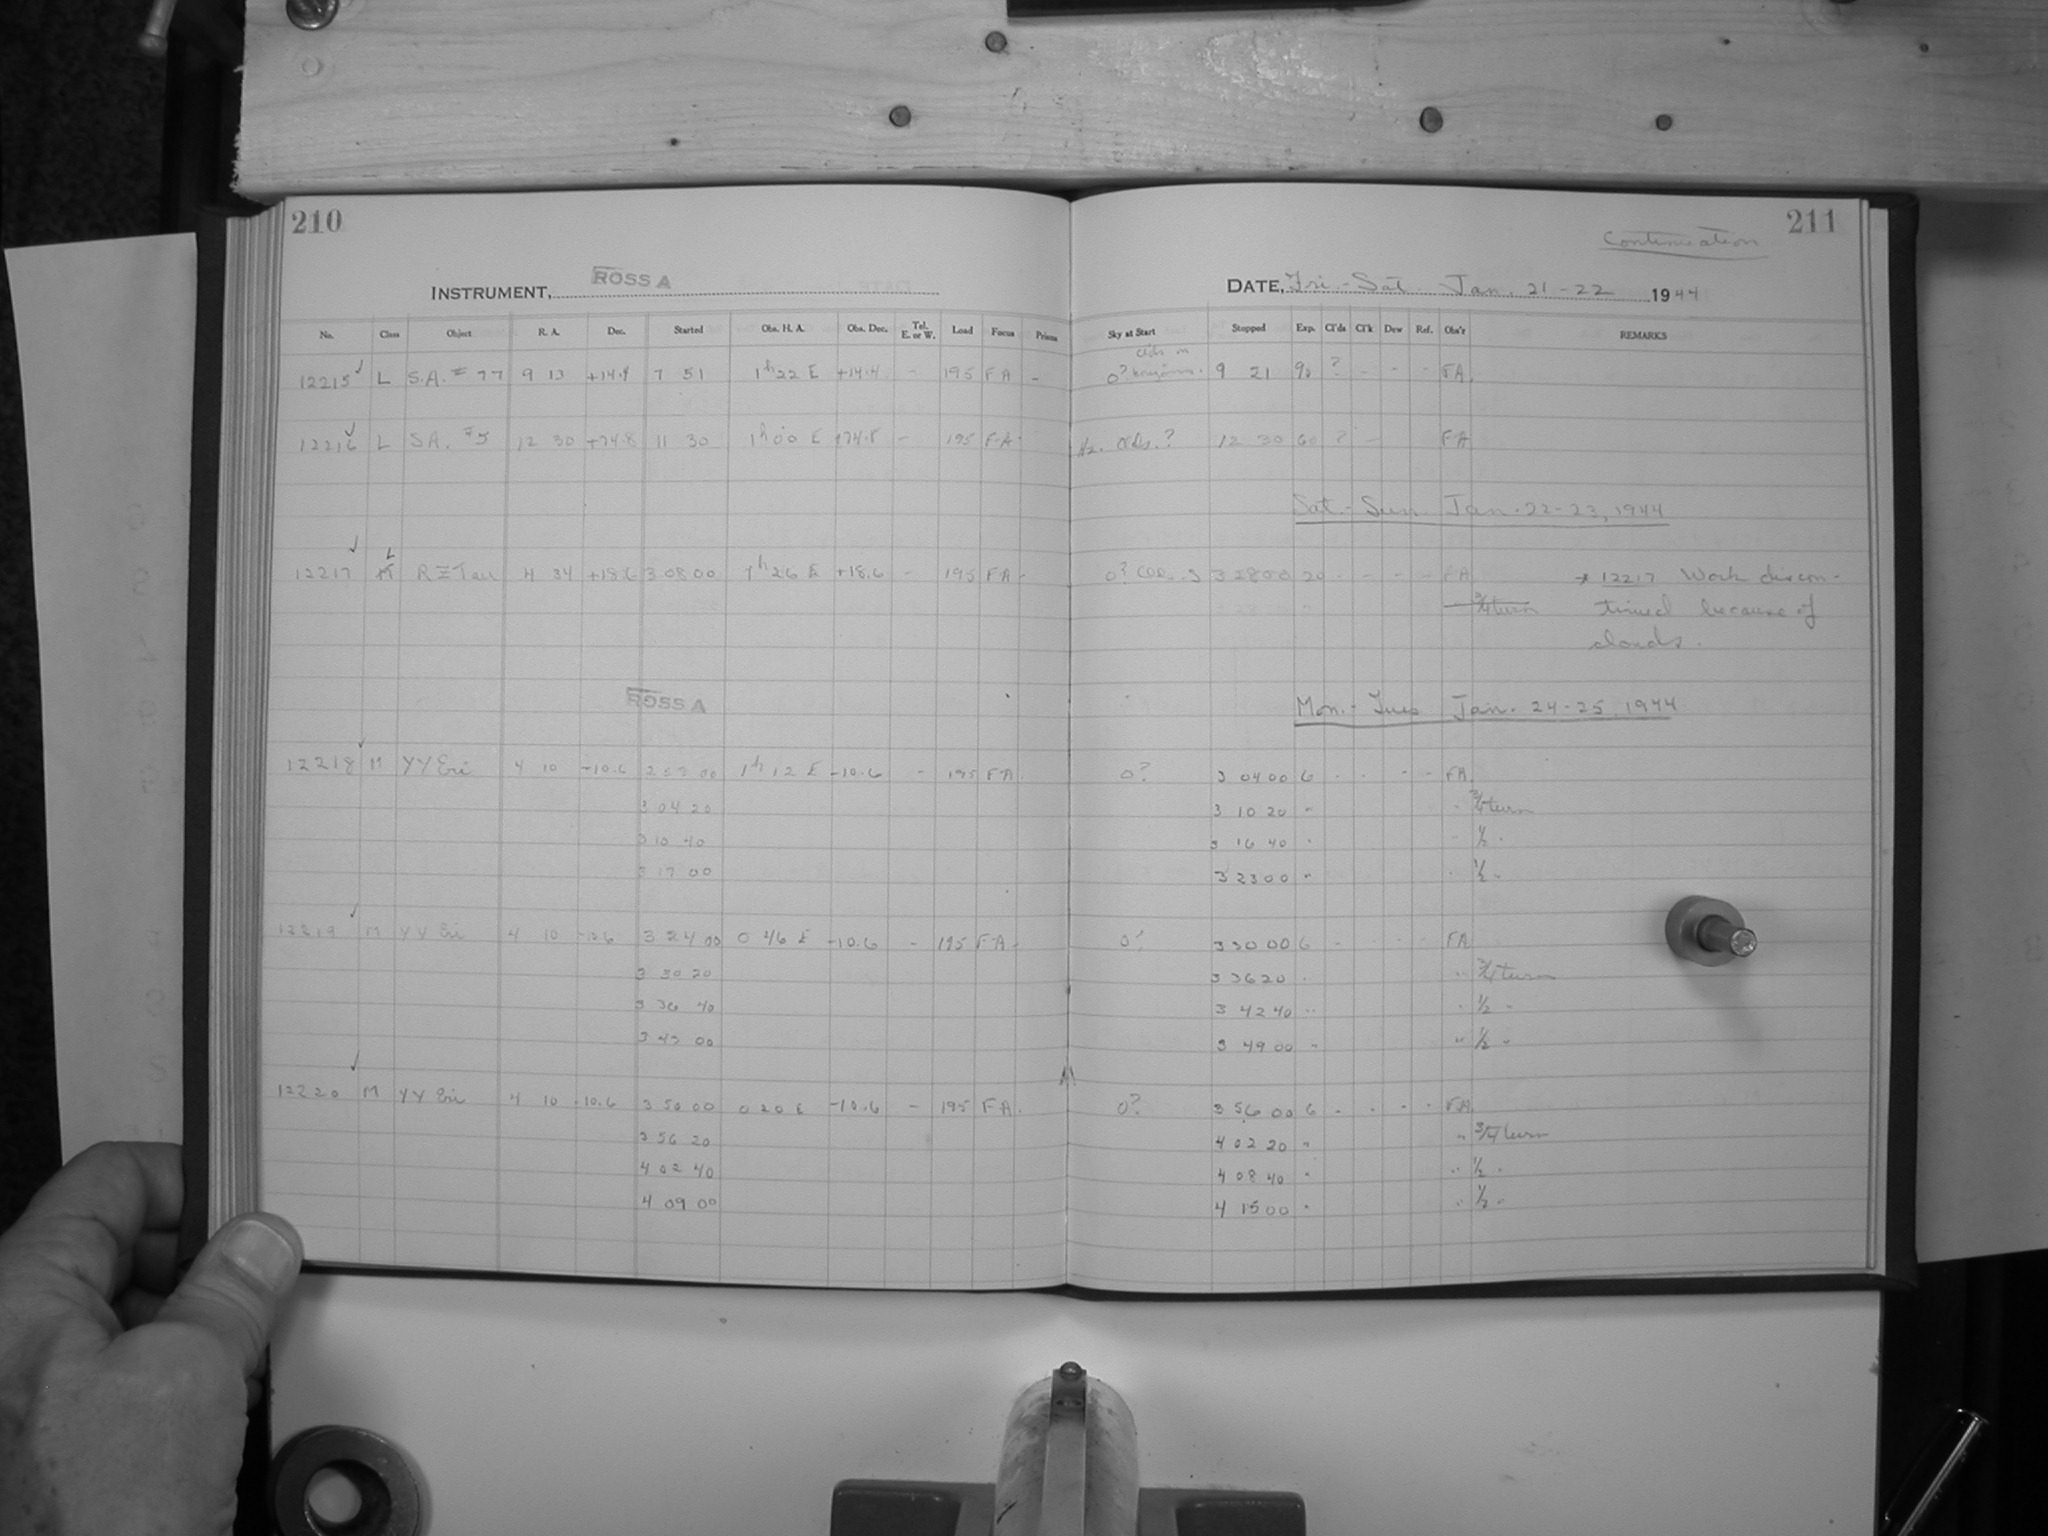 210
211
Continuation
INSTRUMENT, ROSS A
DATE, Fri.-Sat. Jan. 21-22 1944
No. Class Object R. A. Dec. Started Obs. H. A. Obs. Dec. Tel. E. or W. Load Focus Prisms Sky at Start Stopped Exp. Cl'ds Cl'k Dew Ref. Obs'r REMARKS
12215 L S.A. # 77 9 13 +14.4 7 51 1h 22 E +14.4 - 195 FA - 0? 9 21 90 ? - - - FA
12216 L S.A. #5 12 30 +74.8 11 30 1h 00 E +74.8 - 195 FA Hz. Clds.? 12 30 60 ? - FA
Sat.-Sun. Jan. 22-23, 1944
12217 L M RZ Tau 4 34 +18.6 3 08 00 1h 26 E +18.6 - 195 FA 0? 3 28 00 20 - - - - FA * 12217 Work discon-
3/4 turn tinued because of
clouds.
ROSS A
Mon.-Tues Jan. 24-25, 1944
12218 M YY Eri 4 10 -10.6 2 58 00 1h 12 E -10.6 - 195 FA 0? 3 04 00 6 - - - - FA
3 04 20 3 10 20 " " 3/4 turn
3 10 40 3 16 40 " " 1/2 "
3 17 00 3 23 00 " " 1/2 "
12219 M YY Eri 4 10 -10.6 3 24 00 0 46 E -10.6 - 195 FA 0? 3 30 00 6 - - - FA
3 30 20 3 36 20 " " 3/4 turn
3 36 40 3 42 40 " " 1/2 "
3 43 00 3 49 00 " " 1/2 "
12220 M YY Eri 4 10 -10.6 3 50 00 0 20 E -10.6 - 195 FA 0? 3 56 00 6 - - - - FA
3 56 20 4 02 20 " " 3/4 turn
4 02 40 4 08 40 " " 1/2 "
4 09 00 4 15 00 " " 1/2 "